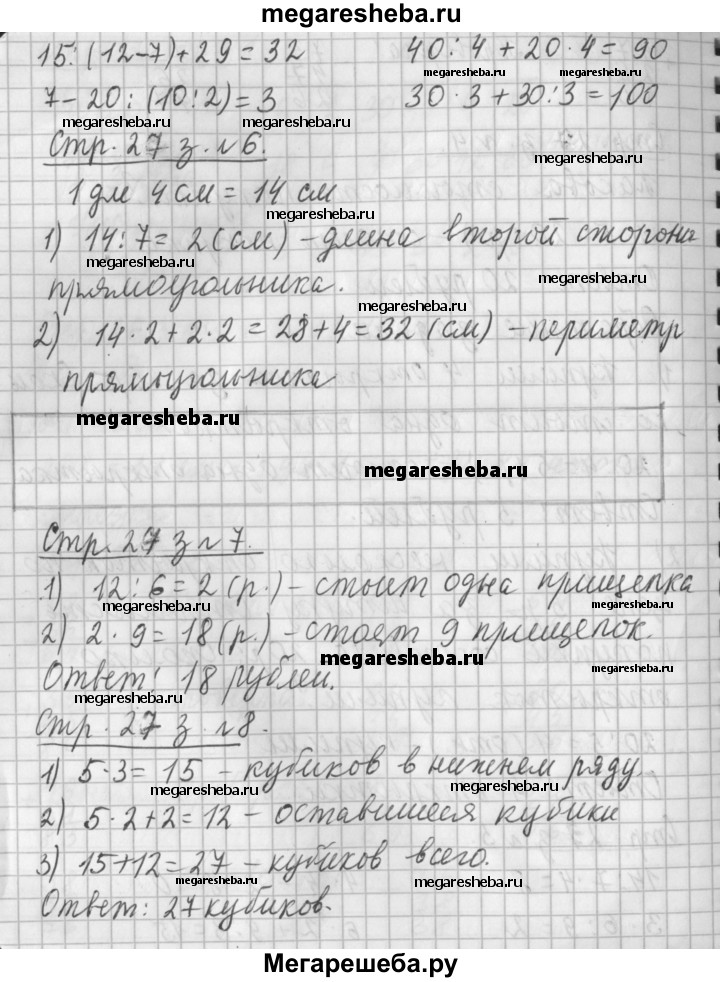 megaresheba.ru
15:(12-7)+29=32 40:4+20·4=90
megaresheba.ru megaresheba.ru
7-20:(10:2)=3 30·3+30:3=100
megaresheba.ru megaresheba.ru
Стр. 27 з. №6. megaresheba.ru
1 дм 4 см = 14 см
megaresheba.ru
1) 14:7= 2(см) – длина второй сторона
megaresheba.ru megaresheba.ru
прямоугольника. megaresheba.ru
2) 14·2+2·2=28+4=32 (см) – периметр
megaresheba.ru megaresheba.ru
прямоугольника
megaresheba.ru
megaresheba.ru
Стр. 27 з №7.
1) 12:6=2(р.) – стоит одна прищепка
megaresheba.ru megaresheba.ru
2) 2·9=18(р.) – стоят 9 прищепок.
megaresheba.ru megaresheba.ru
Ответ: 18 рублей.
megaresheba.ru
Стр. 27 з. №8.
1) 5·3= 15 – кубиков в нижнем ряду
megaresheba.ru megaresheba.ru
2) 5·2+2=12 – оставшиеся кубики
3) 15+12=27 – кубиков всего.
megaresheba.ru megaresheba.ru
Ответ: 27 кубиков.
Мегарешеба.ру